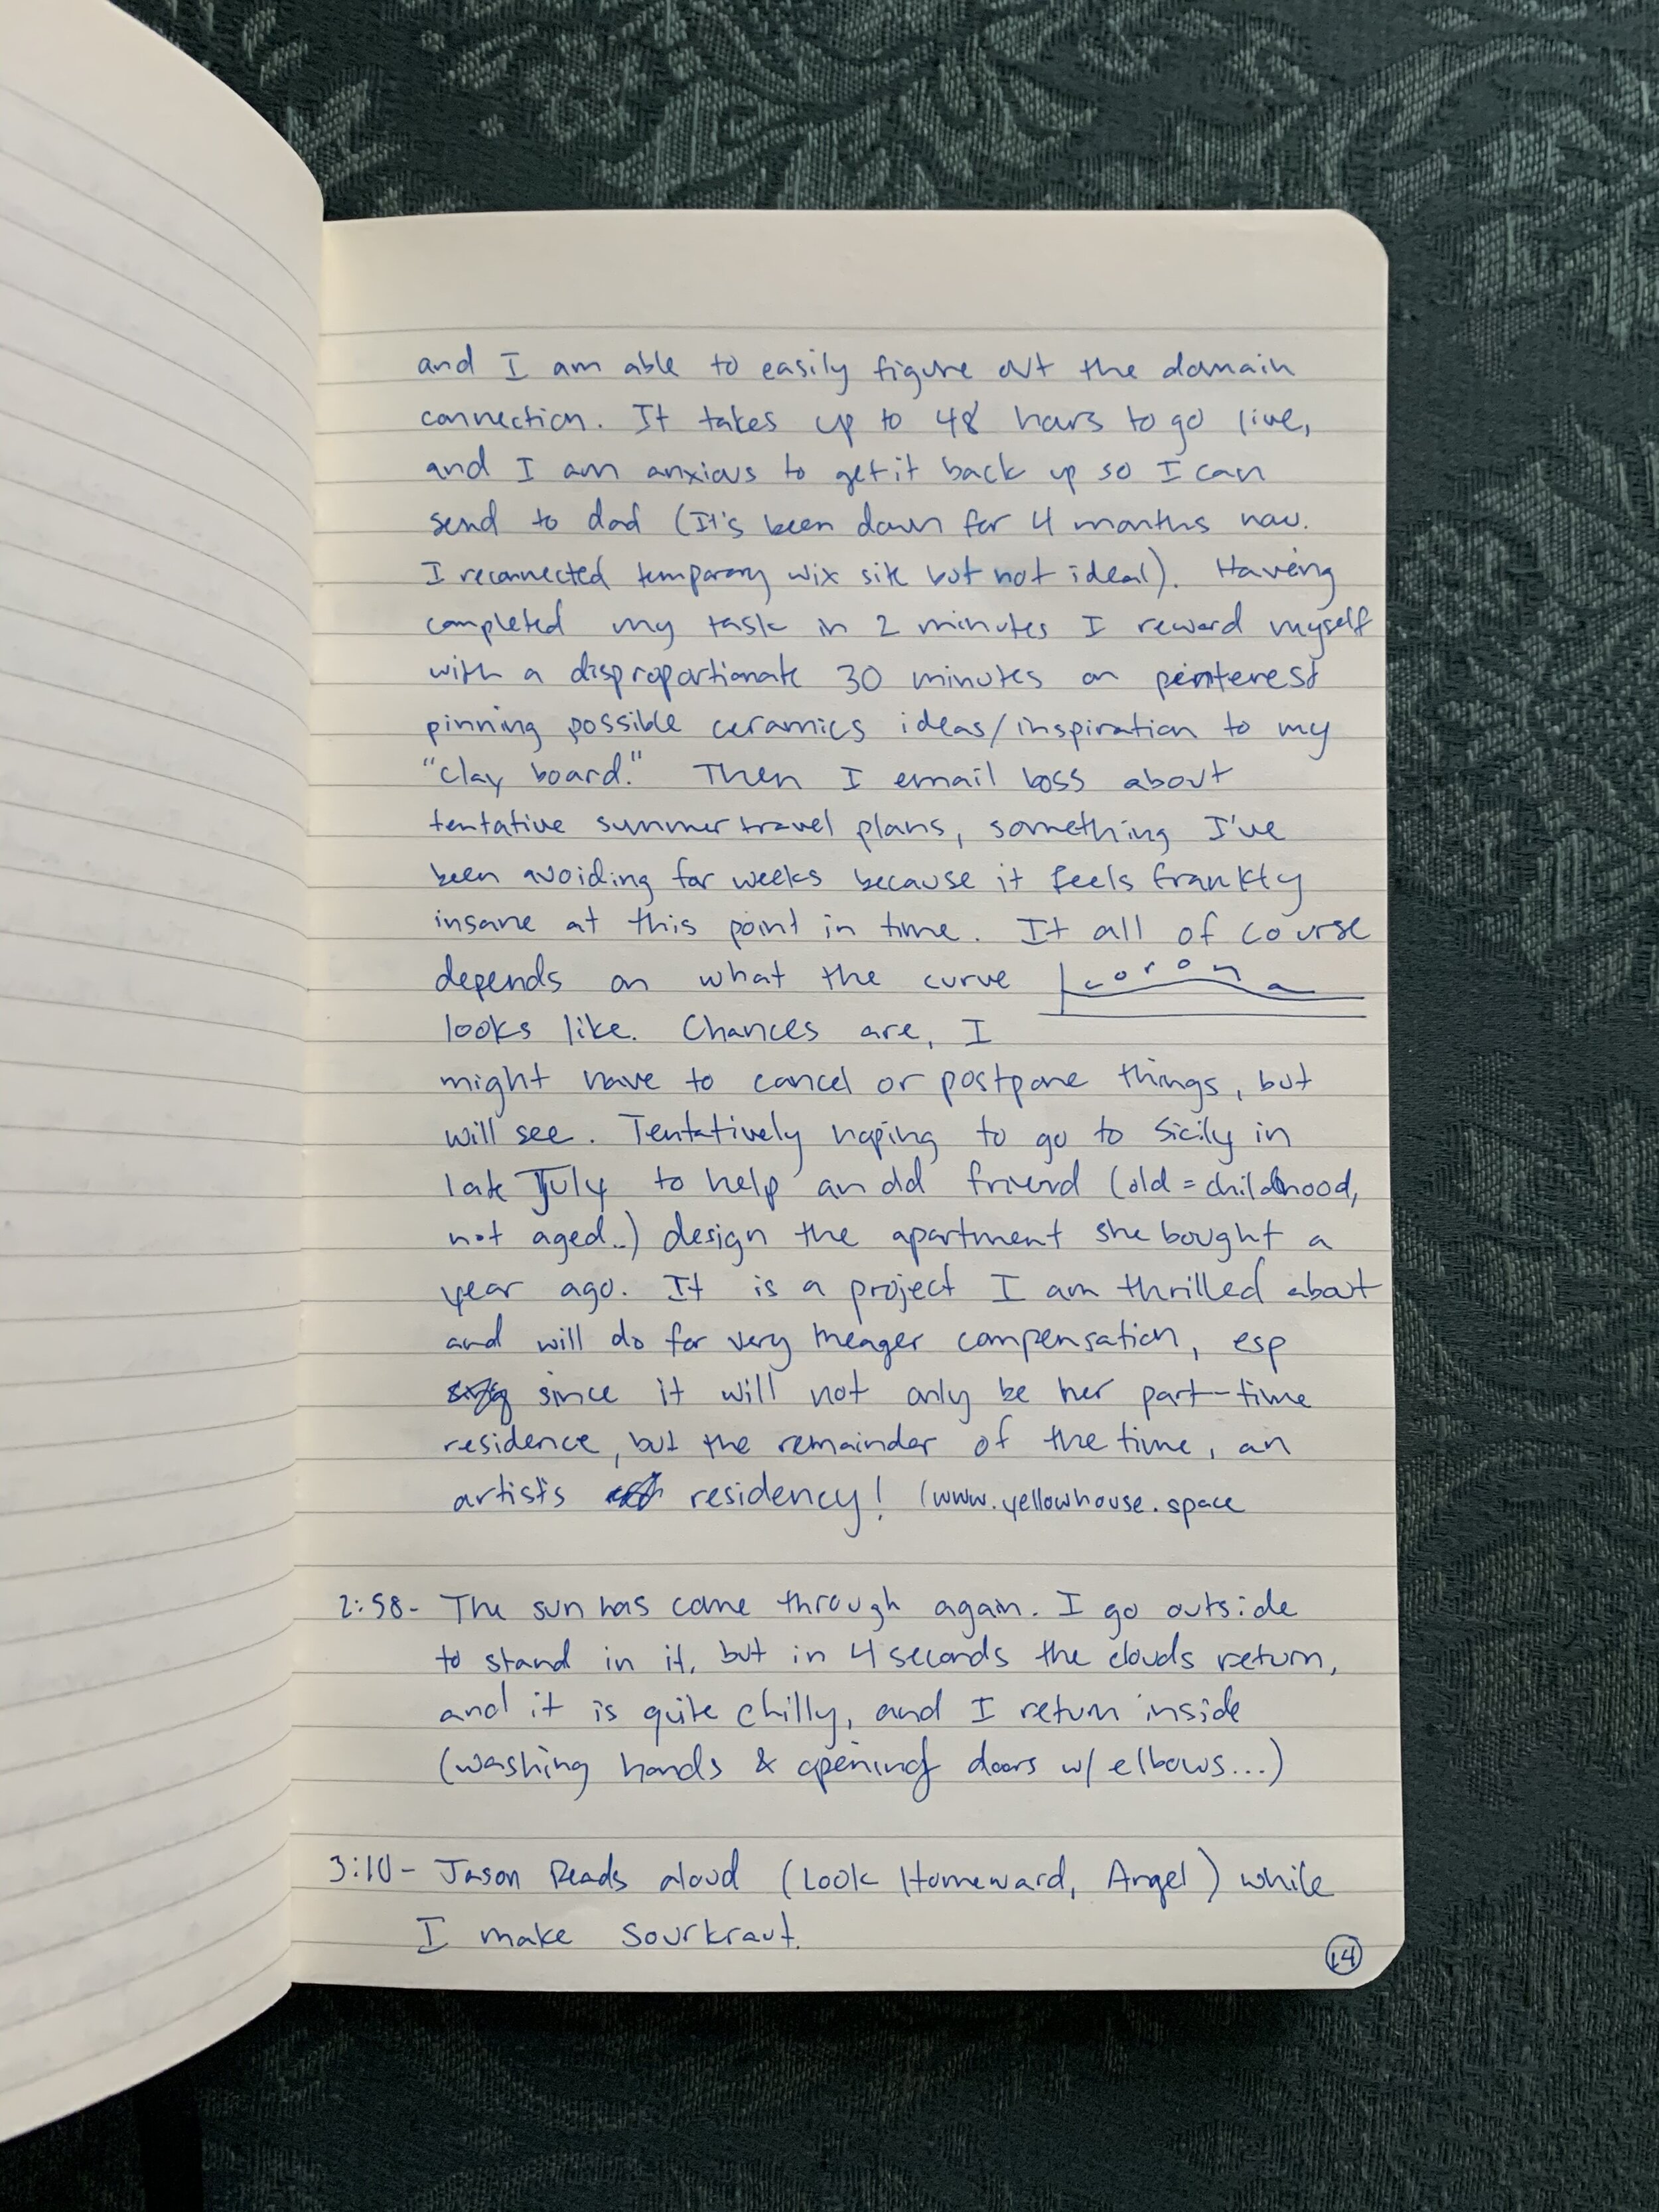 and I am able to easily figure out the domain
connection. It takes up to 48 hours to go live,
and I am anxious to get it back up so I can
send to dad (It's been down for 4 months now.
I reconnected temporary wix site but not ideal). Having
completed my task in 2 minutes I reward myself
with a disproportionate 30 minutes on pinterest
pinning possible ceramics ideas/inspiration to my
"clay board." Then I email boss about
tentative summer travel plans, something I've
been avoiding for weeks because it feels frankly
insane at this point in time. It all of course
depends on what the curve corona
looks like. Chances are, I
might have to cancel or postpone things, but
will see. Tentatively hoping to go to Sicily in
late July to help an old friend (old = childhood,
not aged..) design the apartment she bought a
year ago. It is a project I am thrilled about
and will do for very meager compensation, esp
since it will not only be her part-time
residence, but the remainder of the time, an
artists residency! (www.yellowhouse.space
2:58- The sun has come through again. I go outside
to stand in it, but in 4 seconds the clouds return,
and it is quite chilly, and I return inside
(washing hands & opening doors w/ elbows...)
3:10- Jason Reads aloud (Look Homeward, Angel) while
I make sourkraut.
14